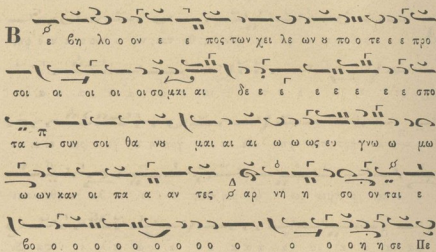 Β ε βη λο ο ον ε ε πος των χει λε ων ȣ πο ο τε ε ε προ
σοι οι οι οι οι σο μαι αι δε ε ε ε ε ε ε ε σπο
τα συν σοι θα νȣ μαι αι αι ω ω ως ευ γνω ω μω
ω ων καν οι πα α αν τες αρ νη η σο ον ται ε
βο ο ο ο ο ο ο ο ο ο ο ο ο η η σε Πε